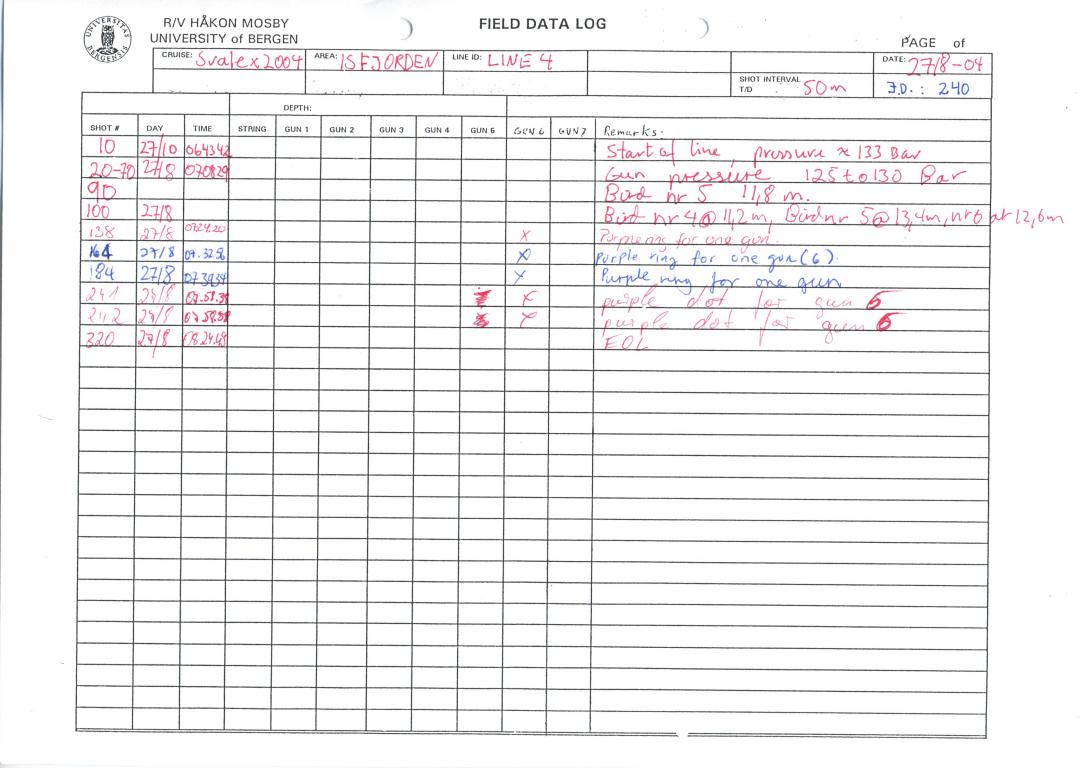 UNIVERSITAS BERGENSIS
R/V HÅKON MOSBY
UNIVERSITY of BERGEN
FIELD DATA LOG
PAGE of
CRUISE: Svalex2004 AREA: ISFJORDEN LINE ID: LINE 4 DATE: 27/8-04
SHOT INTERVAL T/D 50m J.D.: 240
DEPTH:
SHOT # DAY TIME STRING GUN 1 GUN 2 GUN 3 GUN 4 GUN 5 GUN 6 GUN 7 Remarks:
10 27/10 064342 Start of line, pressure ≈ 133 Bar
20-70 27/8 070829 Gun pressure 125 to 130 Bar
90 Bird nr 5 11,8 m.
100 27/8 Bird nr 4 @ 11,2m, Bird nr 5 @ 13,4m, nr 6 at 12,6m
138 27/8 0724.20 x for one gun.
164 27/8 07.32 x purple ring for one gun (6).
184 27/8 073934 x Purple ring for one gun
241 x purple dot for gun 6
242 x purple dot for gun 6
320 27/8 EOL